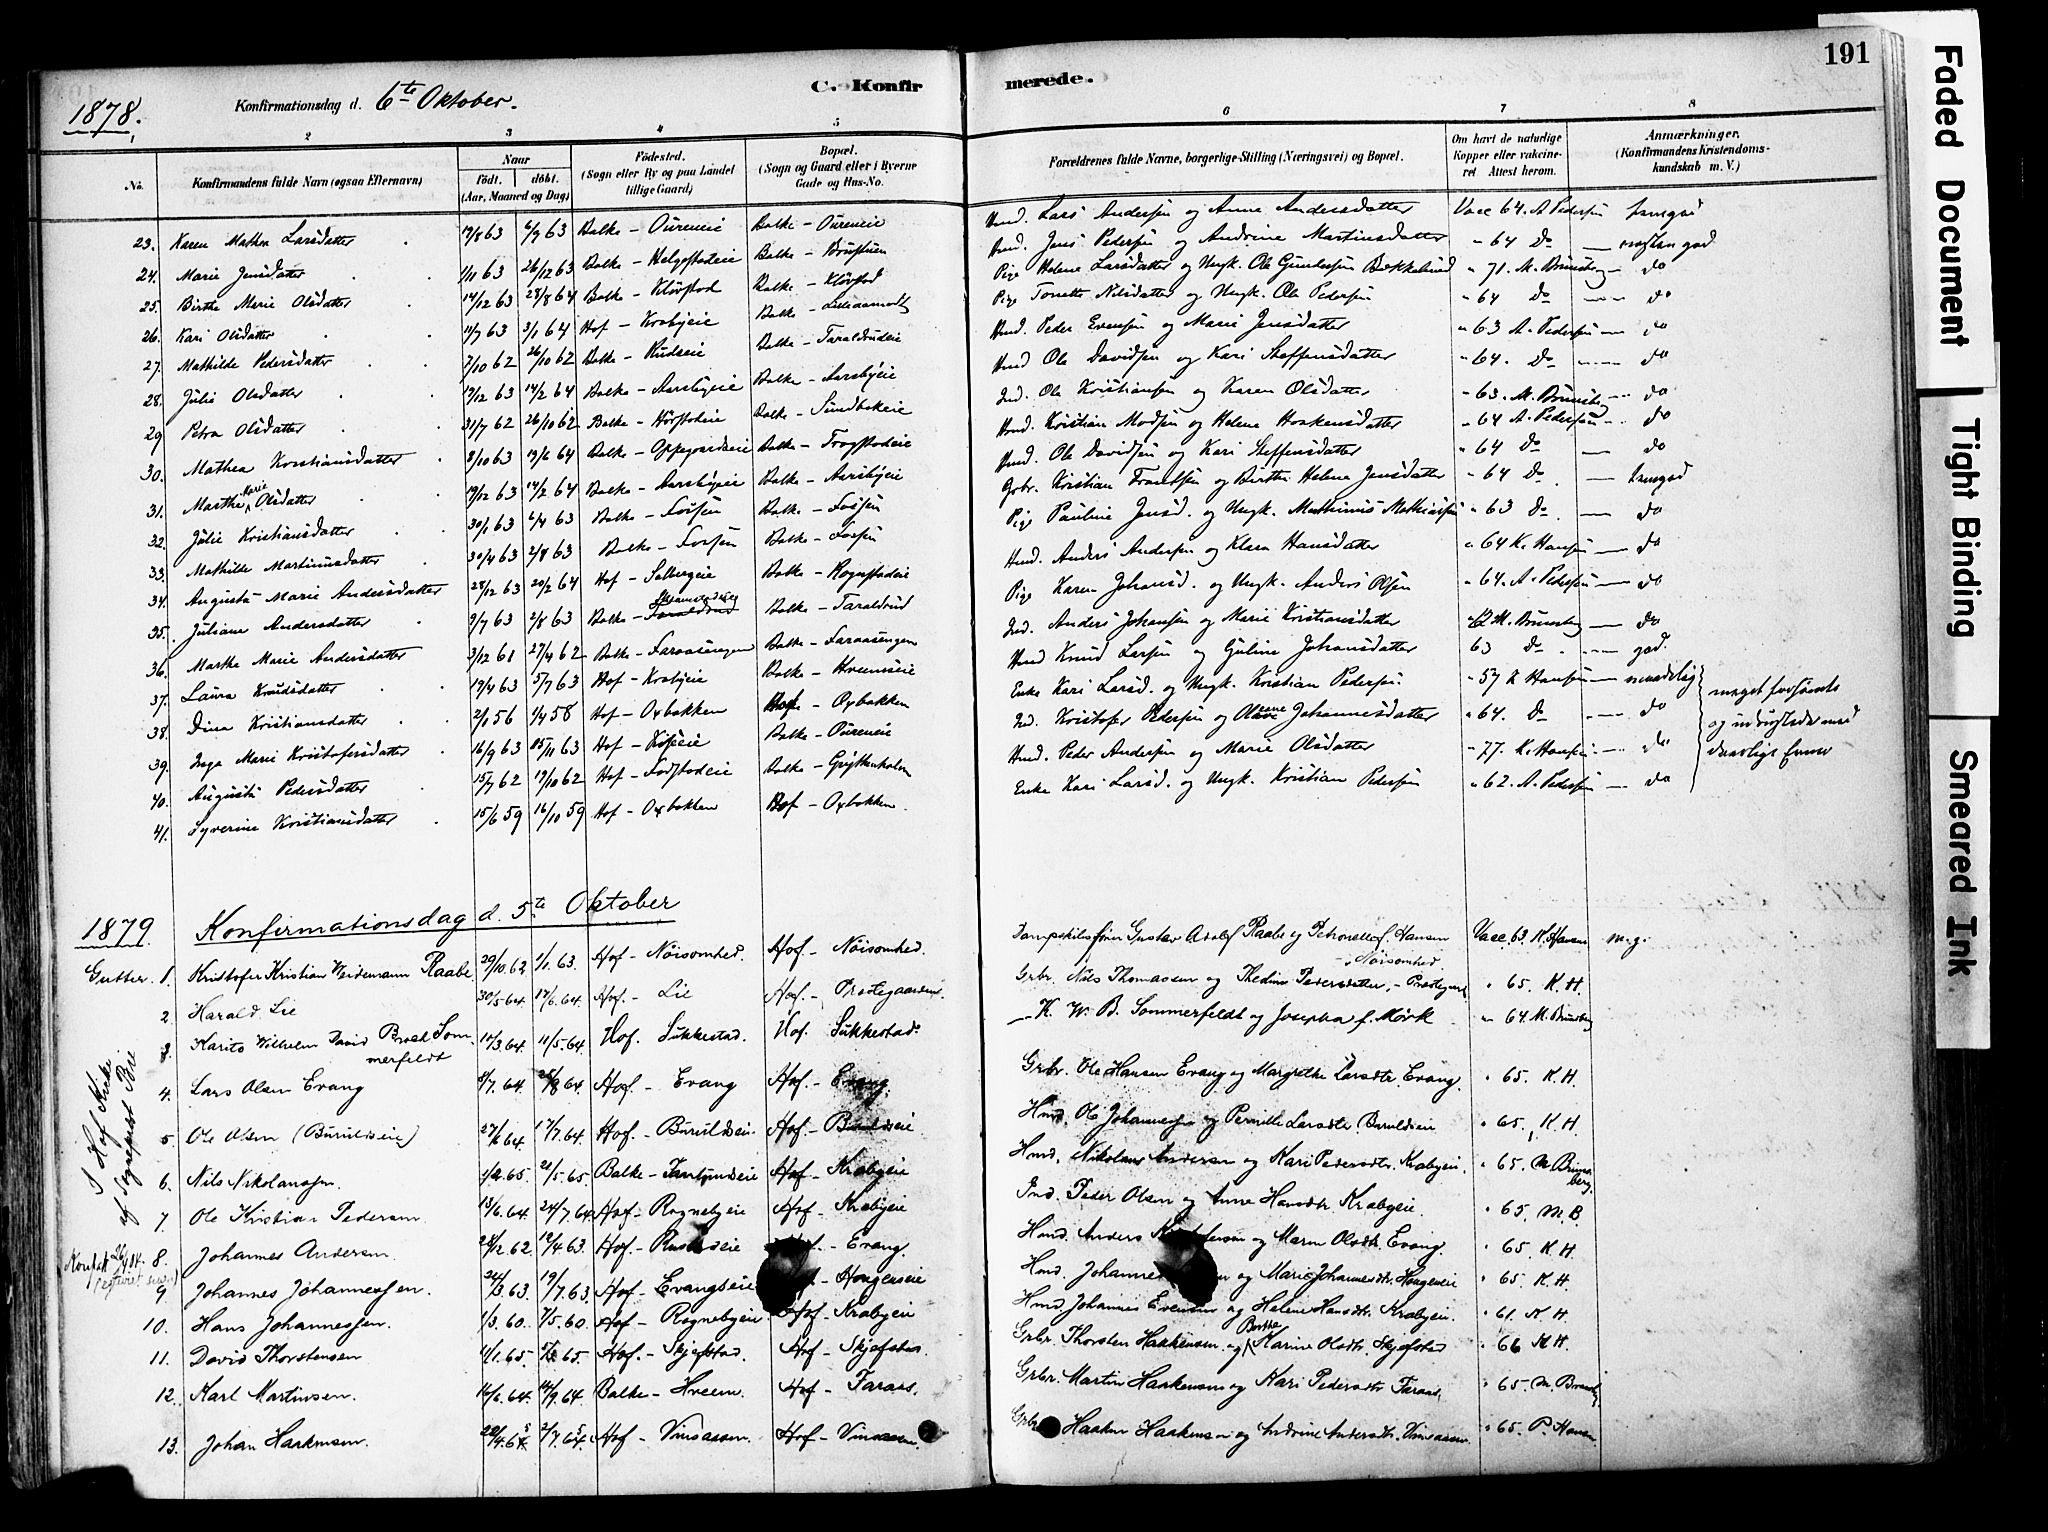 191
C. Konfirmerede.
1878. Konfirmationsdag d. 6te Oktober.
1 2 3 4 5 6 7 8
No.
Konfirmandens fulde Navn (ogsaa Efternavn)
Naar
födt. döbt.
(Aar, Maaned og Dag)
Födested.
(Sogn eller By og paa Landet
tillige Gaard)
Bopæl.
(Sogn og Gaard eller i Byerne
Gade og Hus-No.
Forældrenes fulde Navne, borgerlige Stilling (Næringsvei) og Bopæl.
Om havt de naturlige
Kopper eller vakcine-
ret Attest herom.
Anmærkninger.
(Konfirmandens Kristendoms-
kundskab m. V.)
23. Karen Mathea Larsdatter 19/8 63 6/9 63 Balke - Oureneie Balke - Oureneie Hmd. Lars Andersen og Anne Andersdatter Vacc 64. A Pedersen
24. Marie Jensdatter 1/11 63 26/12 63 Balke - Balke - Hmd. Jens Pedersen og Andrine Martinsdatter " 64 Do næsten god
25. Birthe Marie Olsdatter 14/12 63 28/8 64 Balke - Klövstad Balke - Klövstad Pige Helene Larsdatter og Ungk. Ole Gundersen " 71. M. Brunsberg do
26. Kari Olsdatter 11/7 63 3/1 64 Hof - Krabyeie Balke - Pige Tonette Nilsdatter og Ungk. Ole Pedersen " 64 Do do
27. Mathilde Pedersdatter 7/10 62 26/10 62 Balke - Rudseie Balke - Taraldrudeie Hmd. Peder Evensen og Marie Jensdatter " 63 A. Pedersen do
28. Julie Olsdatter 19/12 63 14/2 64 Balke - Aarsbyeie Balke - Aarsbyeie Hmd Ole Davidsen og Kari Steffensdatter " 64. Do do
29 Petra Olsdatter 31/7 62 26/10 62 Balke - Balke - Sundbakeie Ind. Ole Kristiansen og Karen Olsdatter " 63. M. Brunsberg do
30. Mathea Kristiansdatter 8/10 63 19/6 64 Balke - Oppegaardseie Balke - Frogstadeie Hmd. Kristian Madsen og Helene Haakensdatter " 64 A. Pedersen do
31. Marthe Marie Olsdatter 19/12 63 14/2 64 Balke - Aarsbyeie Balke - Aarsbyeie Hmd. Ole Davidsen og Kari Steffensdatter " 64 Do do
32. Julie Kristiansdatter 30/1 63 6/4 63 Balke - Fossen Balke - Fossen Grbr. Kristian Frandsen og Birthe Helene Jensdatter " 64 Do
33. Mathilde Martiniusdatter 30/4 63 2/8 63 Balke - Fossen Balke - Fossen Pige Pauline Jensd. og Ungk. Martinius Mathiassen " 63 Do do
34. Augusta Marie Andersdatter 28/12 63 20/2 64 Hof - Solbergeie Balke - Rognstadeie Hmd. Anders Andersen og Klara Hansdatter " 64 K. Hansen do
35. Juliane Andersdatter 9/7 63 2/8 63 Balke - Taraldrud Balke - Taraldrud Pige Karen Johansd. og Ungk. Anders Olsen " 64. A. Pedersen do
36. Marthe Marie Andersdatter 3/12 61 27/4 62 Balke - Faraasengen Balke - Faraasengen Ind. Anders Johansen og Marie Kristiansdatter M. Brunsberg do
37. Laura Knudsdatter 19/4 63 5/7 63 Hof - Krabyeie Balke - Hveemseie Hmd Knud Larsen og Guline Johansdatter 63 Do god.
38. Dina Kristiansdatter 2/1 56 1/4 58 Hof - Oxbakken Hof - Oxbakken Enke Kari Larsd. og Ungk. Kristian Pedersen " 57 K Hansen
39. Inga Marie Kristofersdatter 16/9 63 15/11 63 Hof - Balke - Oureneie Ind. Kristofer Pedersen og Johannesdatter " 64. Do do
40. Augusta Pedersdatter 15/7 62 19/10 62 Hof - Balke - Hmd. Peder Andersen og Marie Olsdatter " 77. K. Hansen do
41. Syverine Kristiansdatter 15/6 59 16/10 59 Hof - Oxbakken Hof - Oxbakken. Enke Kari Larsd. og Ungk. Kristian Pedersen " 62. A. Pedersen do
meget forsömte
1879. Konfirmationsdag d. 5te Oktober
Gutter. 1. Kristofer Kristian Weidemann Raabe 29/10. 62 1/1. 63. Hof - Nöisomhed. Hof - Nöisomhed. Gustav Adolf Raabe og Petronelle f. Hansen - Nöisomhed Vacc. 63. K. Hansen m. g.
2. Harald Lie 30/5 64 17/6. 64. Hof. - Lie Hof. - Grbr. Nils Thomassen og Pedersdatter, " 65. K. H.
3. Wilhelm David Sommerfeldt 11/5. 64. Hof. Sukkestad. Hof. Sukkestad. K. W. B. Sommerfeldt og Josepha f. Mörk " 64. M. Brunsberg
4. Lars Olsen Evang 8/7. 64 64 Hof - Evang Hof. - Evang. Grbr. Ole Hansen Evang og Margrethe Larsdtr. Evang. " 65. K. H.
5 Ole Olsen (Burulseie) 27/6 64 17/7. 64. Hof. - Burulseie Hof - Hmd. Ole Johannessen og Pernille Larsdtr. " 65. K. H.
6. Nils Nikolaisen. 1/2 65. 21/5. 65. Balke - Hof - Krabyeie Hmd. Nikolai Andersen og Kari Pedersdtr. Krabyeie. " 65. M Brunsberg.
7. Ole Kristian Pedersen. 13/6. 64. 24/7 64. Hof - Rognebyeie Hof. - Krabyeie Ind. Peder Olsen og Anne Hansdtr. Krabyeie. " 65. M. B.
8. Johannes Andersen. 62 12/4 63. Hof - Hof. - Evang. Hmd. Anders og Maren Olsdtr. Evang. " 65. K. H.
9 Johannes Johannessen. 24/3 63. 19/7. 63. Hof - Evangseie - Haugerseie Hmd. Johannes og Marie Johannesdtr. " 65. K. H.
10. Hans Johannessen. 1/3. 60. 7/5. 60. Hof - Rognebyeie Hof - Krabyeie Hmd. Johannes Evensen og Helene Hansdtr. Krabyeie. " 61. K. H.
11. David Thorstensen 11/1. 65. 65. Hof. - Skjefstad. Hof - Skjefstad. Grbr. Thorsten Haakensen og Berthe Karine Olsdtr. Skjefstad " 66 K H.
12. Karl Martinsen. 16/6. 64. 64. Balke - Hveem. Hof - Faraas. Grbr. Martin Haakensen og Kari Pedersdtr. Faraas, " 65. M. Brunsberg
13. Johan Haakensen. Hof - Vinsaasen. Hof - Vinsaasen Grbr Haaken Haakensen og Andrine Andersdtr. Vinsaasen. " 65. P. Hansen.
I Hof Kirke
af Sognepræst Bie
Faded Document
Tight Binding
Smeared Ink